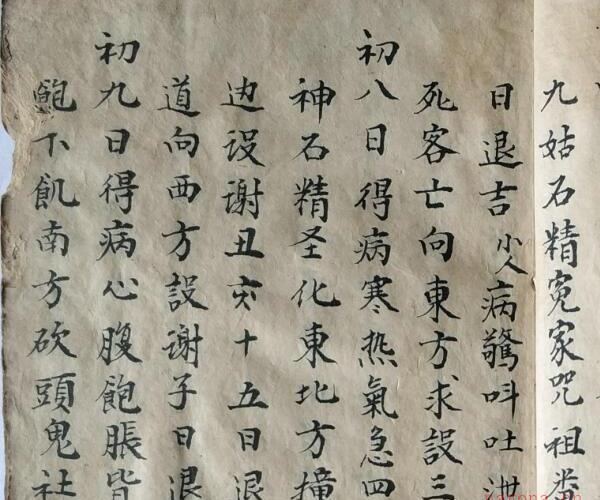 九姑石精冤家咒祖
日退吉小人病驚呌吐泄
死客亡向東方求設三
初八日得病寒热氣急四
神石精圣化東北方撞
边设谢丑亥十五日退
道向西方設谢子日退
初九日得病心腹飽脹皆
飽不飢南方砍頭鬼社